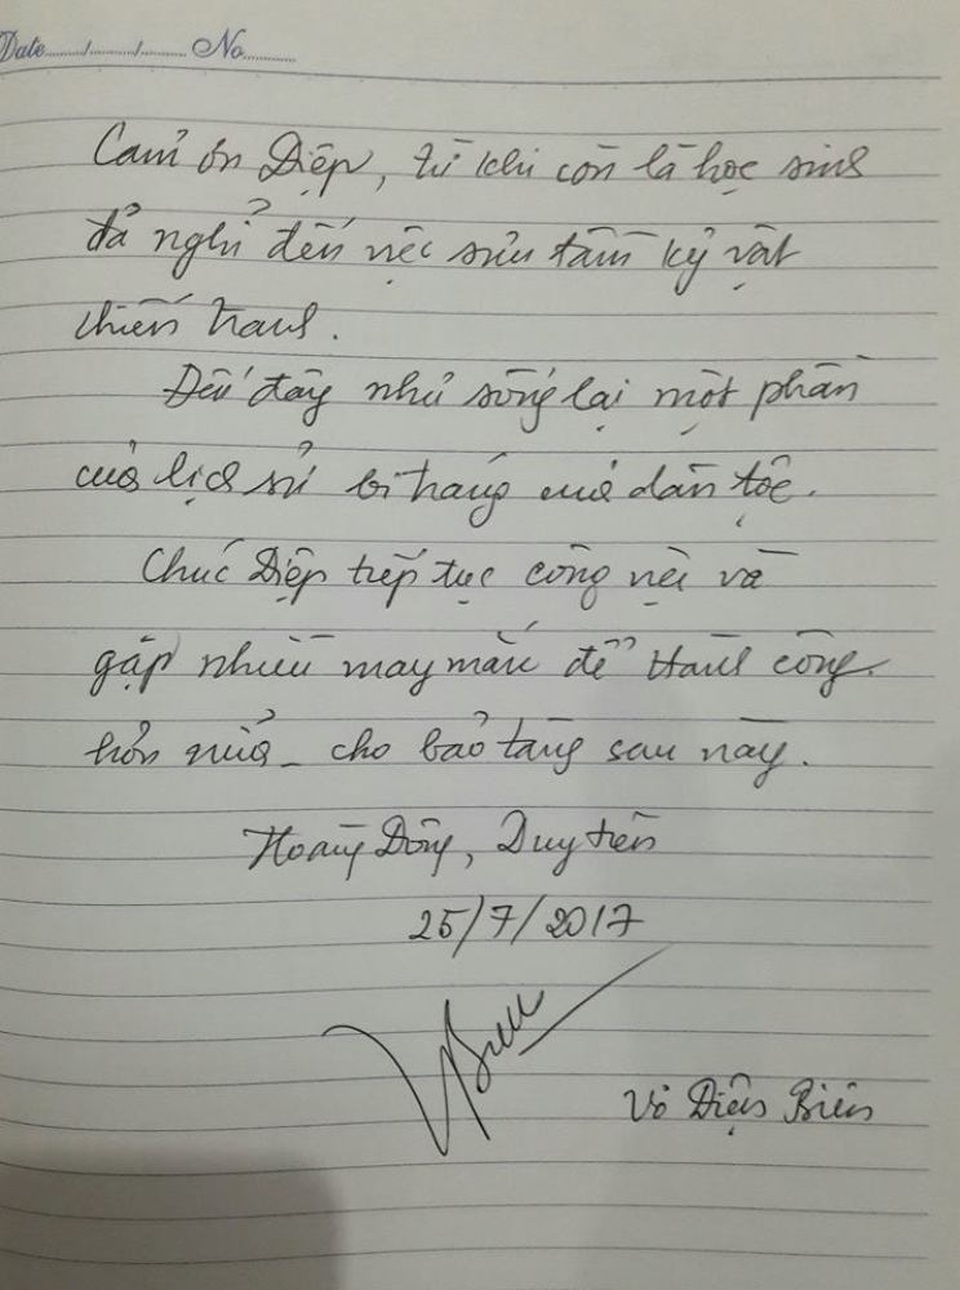 Date......../......../........ No...........
Cảm ơn Diệp, từ khi còn là học sinh
đả nghỉ đến việc sưu tầm kỷ vật
chiến tranh.
Đến đây như sống lại một phần
của lịch sử bi tráng của dân tộc.
Chúc Diệp tiếp tục công việc và
gặp nhiều may mắn để thành công
hơn nửa cho bảo tàng sau này.
Hoàng Đông, Duy tiên
25/7/2017
Võ Điện Biên